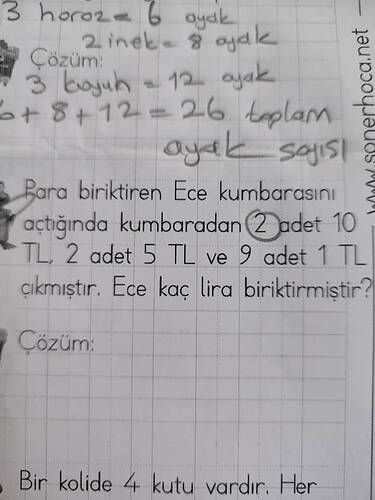 3 horoz = 6 ayak
2 inek = 8 ayak
Çözüm:
3 koyun = 12 ayak
6 + 8 + 12 = 26 toplam
ayak sayısı
www.sonerhoca.net
Para biriktiren Ece kumbarasını
açtığında kumbaradan 2 adet 10
TL, 2 adet 5 TL ve 9 adet 1 TL
çıkmıştır. Ece kaç lira biriktirmiştir?
Çözüm:
Bir kolide 4 kutu vardır. Her